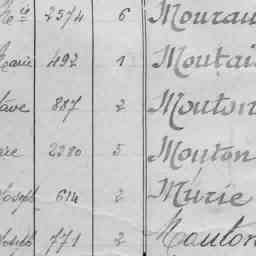 Mie 2574 6 Mourau
Marie 492 1 Moutai
tave 887 2 Mouton
re 2280 5 Mouton
Joseph 614 2 Murie
Joseph 771 2 Mouton